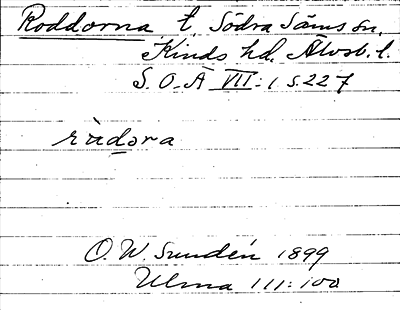 Roddorna t. Södra Säms sn.
Kinds hd. Älvsb. l.
S.O.Ä VII:1 s.227
rùdora
O.W. Sundén 1899
Ulma 111:100